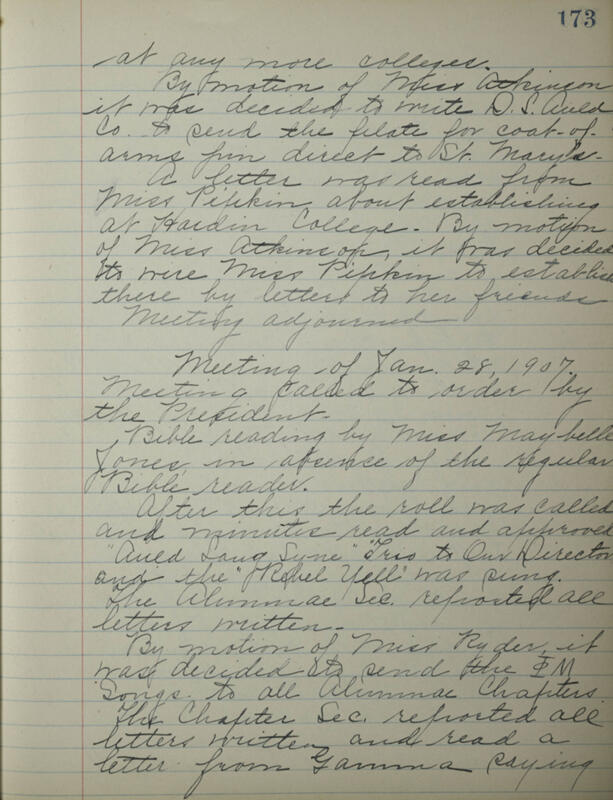 173
at any more colleges.
By motion of Miss Atkinson
it was decided to write D. S. Auld
Co. to send the plate for coat-of-
arms pin direct to St. Mary's-
A letter was read from
Miss Pipkin about establishing
at Hardin College. By motion
of Miss Atkinson, it was decided
to wire Miss Pipkin to establish
there by letters to her friends
Meeting adjourned
Meeting of Jan. 28, 1907.
Meeting called to order by
the President.
Bible reading by Miss Maybelle
Jones in absence of the regular
Bible reader.
After this the roll was called
and minutes read and approved
"Auld Lang Syne" to Our Director
and the "Rebel Yell" was sung.
The Alumnae Sec. reported all
letters written.
By motion of Miss Ryder, it
was decided to send the ΦM
Songs to all Alumnae Chapters.
The Chapter Sec. reported all
letters written and read a
letter from Gamma saying